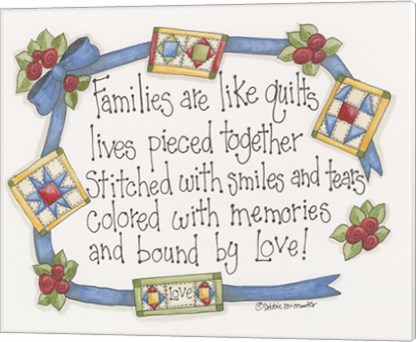 Families are like quilts
lives pieced together
Stitched with smiles and tears
colored with memories
and bound by Love!
Love
© Debbie McMaster